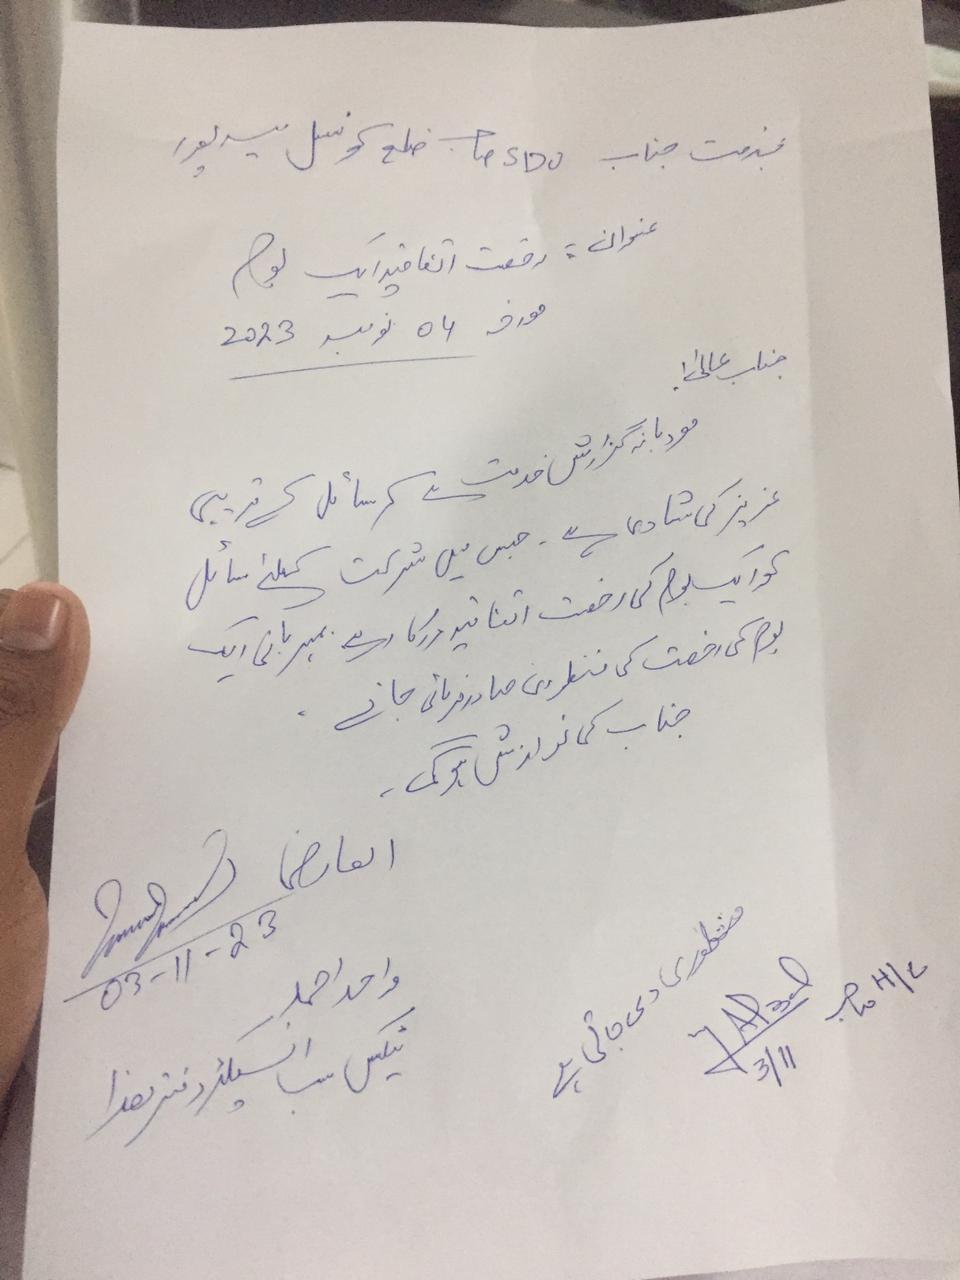 بخدمت جناب SDO صاحب ضلع کونسل میرپور
عنوان:۔ رخصت اتفاقیہ ایک یوم
مورخہ 04 نومبر 2023
جناب عالیٰ!
مودبانہ گزارش خدمت ہے کہ سائل کے قریبی
عزیز کی شادی ہے۔ جس میں شرکت کیلئے سائل
کو ایک یوم کی رخصت اتفاقیہ درکار ہے۔ مہربانی ایک
یوم کی رخصت کی منظوری صادر فرمائی جائے۔
جناب کی نوازش ہوگی۔
العارض
03-11-23
واحد احمد
ٹیکس سب انسپکٹر دفتر ھذا
منظوری دی جاتی ہے
3/11
H/C صاحب